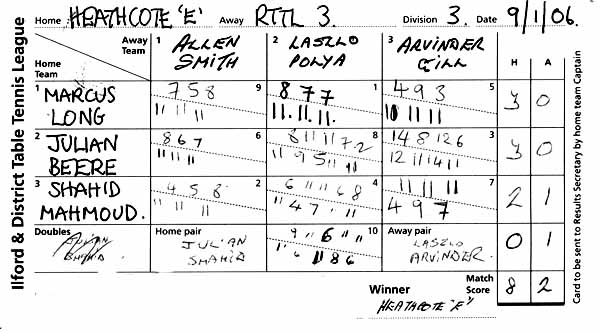 Ilford & District Table Tennis League
Home HEATHCOTE 'E' Away RTTL 3. Division 3. Date 9/1/06.
Away Team 1 ALLEN SMITH 2 LASZLO POLYA 3 ARVINDER GILL H A
Home Team
1 MARCUS LONG 7 5 8 9 8 7 7 1 4 9 3 5 3 0
11 11 11 11. 11. 11. 11 11 11
2 JULIAN BEERE 8 6 7 6 8 11 11 7 2 8 14 8 12 6 3 3 0
11 11 11 11 9 5 11 11 12 11 14 11
3 SHAHID MAHMOUD. 4 5 8 2 6 11 11 6 8 4 11 11 11 7 2 1
11 11 11 11 4 7 11 11 4 9 7
Doubles JULIAN SHAHID Home pair JULIAN SHAHID 10 Away pair LASZLO ARVINDER. 0 1
9 11 6 11 11
11 6 11 8 6
Winner HEATHCOTE "E" Match Score 8 2
Card to be sent to Results Secretary by home team Captain